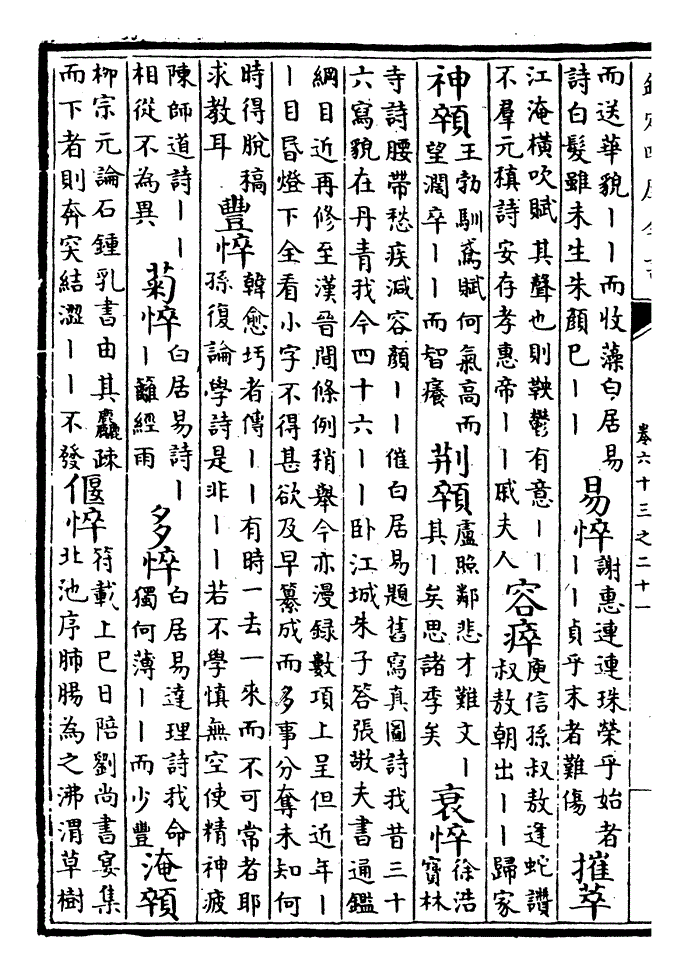 欽定四庫全書
卷六十三之二十一
而送華貌丨丨而收藻白居易
詩白髮雖未生朱顏巳丨丨
易悴
謝惠連連珠榮乎始者
丨丨貞乎末者難傷
摧萃
江淹橫吹賦其聲也則鞅鬱有意丨丨
不羣元稹詩安存孝惠帝丨丨戚夫人
容瘁
庾信孫叔敖逢蛇讚
叔敖朝出丨丨歸家
神顇
王勃馴鳶賦何氣高而
望濶卒丨丨而智癢
荆顇
盧照鄰悲才難文丨
其丨矣思諸季矣
衰悴
徐浩
寶林
寺詩腰帶愁疾減容顏丨丨催白居易題舊寫真圖詩我昔三十
六寫貌在丹青我今四十六丨丨卧江城朱子答張敬夫書通鑑
綱目近再修至漢晉間條例稍舉今亦漫録數項上呈但近年丨
丨目昏燈下全看小字不得甚欲及早纂成而多事分奪未知何
時得脫稿
求教耳
豐悴
韓愈圬者傳丨丨有時一去一來而不可常者耶
孫復論學詩是非丨丨若不學慎無空使精神疲
陳師道詩丨丨
相從不為異
菊悴
白居易詩丨
丨籬經雨
多悴
白居易達理詩我命
獨何薄丨丨而少豐
淹顇
柳宗元論石鍾乳書由其麤疎
而下者則奔突結澀丨丨不發
偃悴
符載上巳日陪劉尚書宴集
北池序肺腸為之沸渭草樹